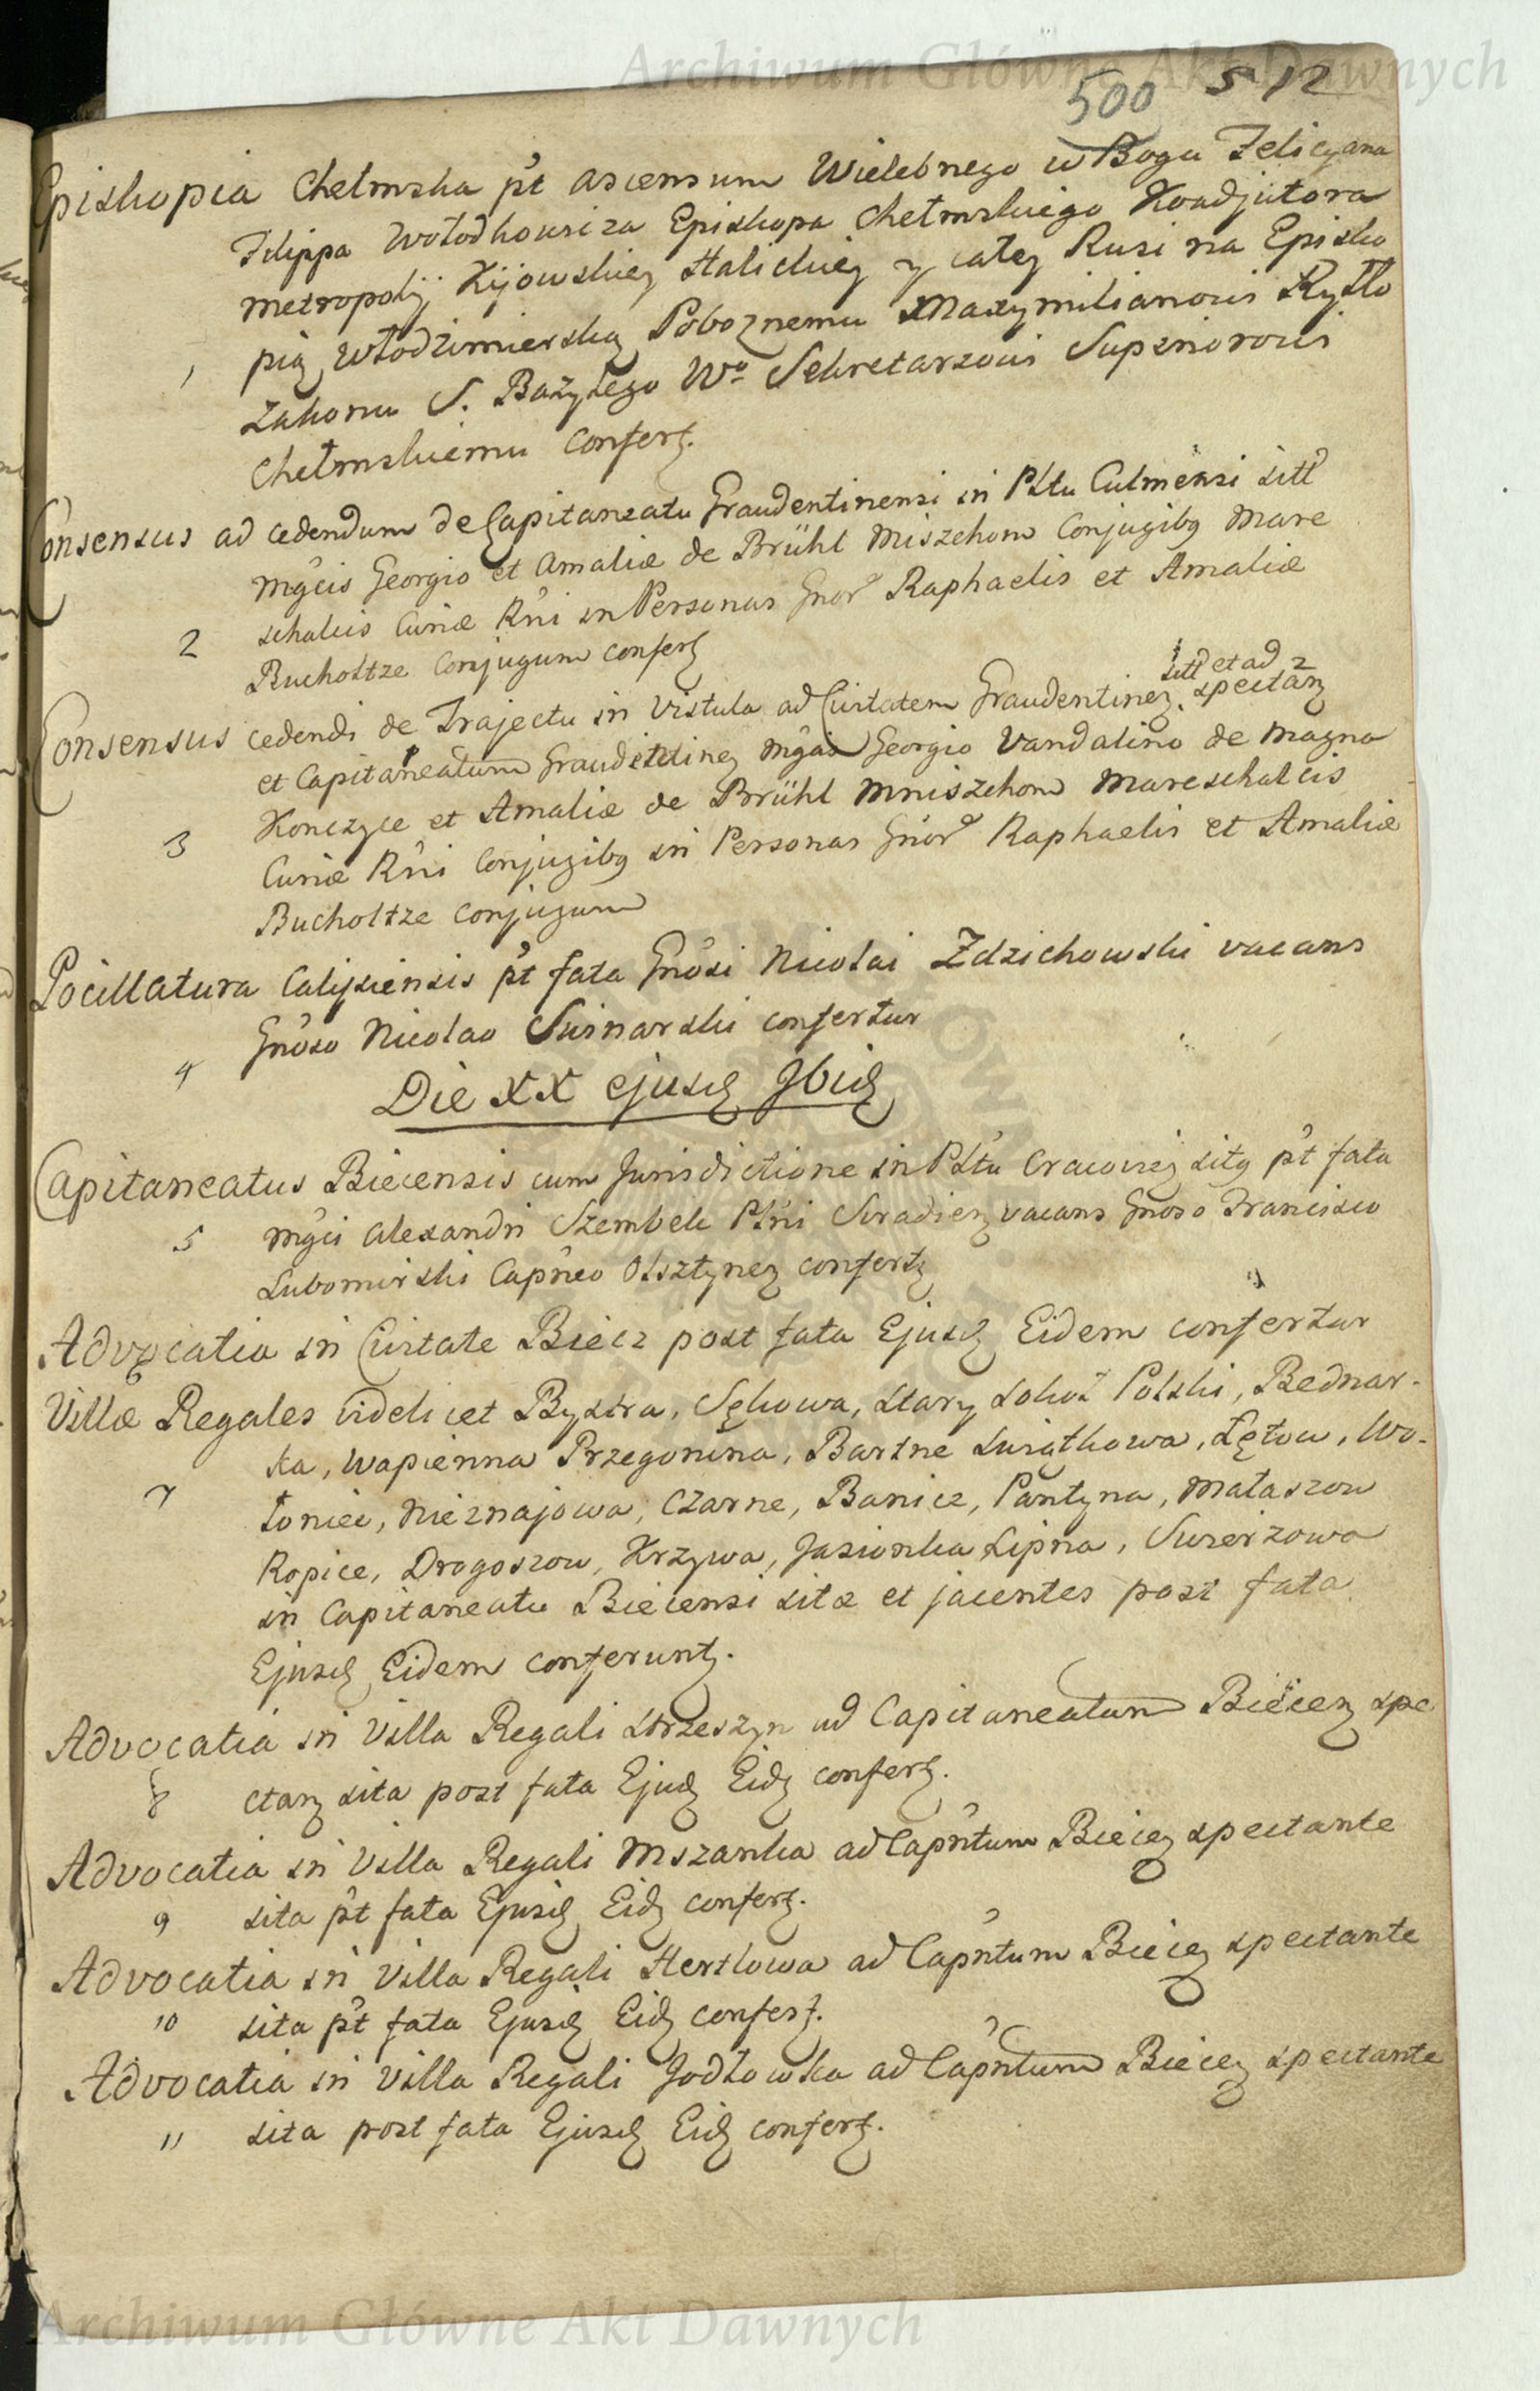 Archiwum Główne Akt Dawnych
500 512
Episkopia Chelmska pt ascensum Wielebnego w Bogu Felicyana
Filippa Wołodkowicza Episkopa Chełmskiego Koadjutora
Metropolij Kijowskiey Halickiey y całey Rusi na Episko
1 pią Włodzimierską Poboznemu Maxymilianowi Ryłło
Zakonu S. Bazylego Wo Sekretarzowi Superiorowi
Chełmskiemu confert.
Consensus ad cedendum de Capitaneatu Graudentinensi in Pltu Culmensi sitt
Mgcis Georgio et Amaliæ de Brühl Miszchom Conjugibq Mare
2 schalcis Curiæ Rni in Personas Gnor Raphaelis et Amaliæ
Bucholtze Conjugum confert
sitt et ad 2
Consensus cedendi de Trajectu in Vistula ad Civitatem Graudentinez spectanz
et Capitaneatum Graudetinez Mgcis Georgio Vandalino de Magna
3 Konczyce et Amaliæ de Brühl Mniszchom Mareschalcis
Curiæ Rni Conjugibq in Personas Gnor Raphaelis et Amaliæ
Bucholtze Conjugum
Pocillatura Calisiensis pt fata Gnosi Nicolai Zdzichowski vacans
4 Gnoso Nicolao Swinarski confertur
Die XX ejusd Ibid
Capitaneatus Biecensis cum Jurisdictione in Pltu Cracoviez sitq pt fata
5 Mgci Alexandri Szembek Plni Siradiez vacans Gnoso Francisco
Lubomirski Capneo Olsztynez confert
Advocatia in Civitate Biecz post fata Ejusd Eidem confertur
6
Villæ Regales videlicet Bystra, Sękowa, Stary Sokoł Polski, Bednar-
ka, Wapienna Przegonina, Bartne Swiątkowa, Łętow, Wo-
7 łoniec, Nieznajowa, Czarne, Banice, Pantyna, Małaszow
Ropice, Drogoszow, Krzywa, Jasionka Lipna, Swierzowa
in Capitaneatu Biecensi sitæ et jacentes post fata
Ejusd Eidem conferunt.
Advocatia in Villa Regali Strzeszyn ad Capitaneatum Biecez spe
8 ctanz sita post fata Ejud Eid confert.
Advocatia in Villa Regali Mszanka ad Capntum Biecez spectante
9 sita pt fata Ejusd Eid confert.
Advocatia in Villa Regali Herklowa ad Capntum Biecez spectante
10 sita pt fata Ejusd Eid confert.
Advocatia in Villa Regali Jodłowka ad Capntum Biecez spectante
11 sita post fata Ejusd Eid confert.
Archiwum Główne Akt Dawnych